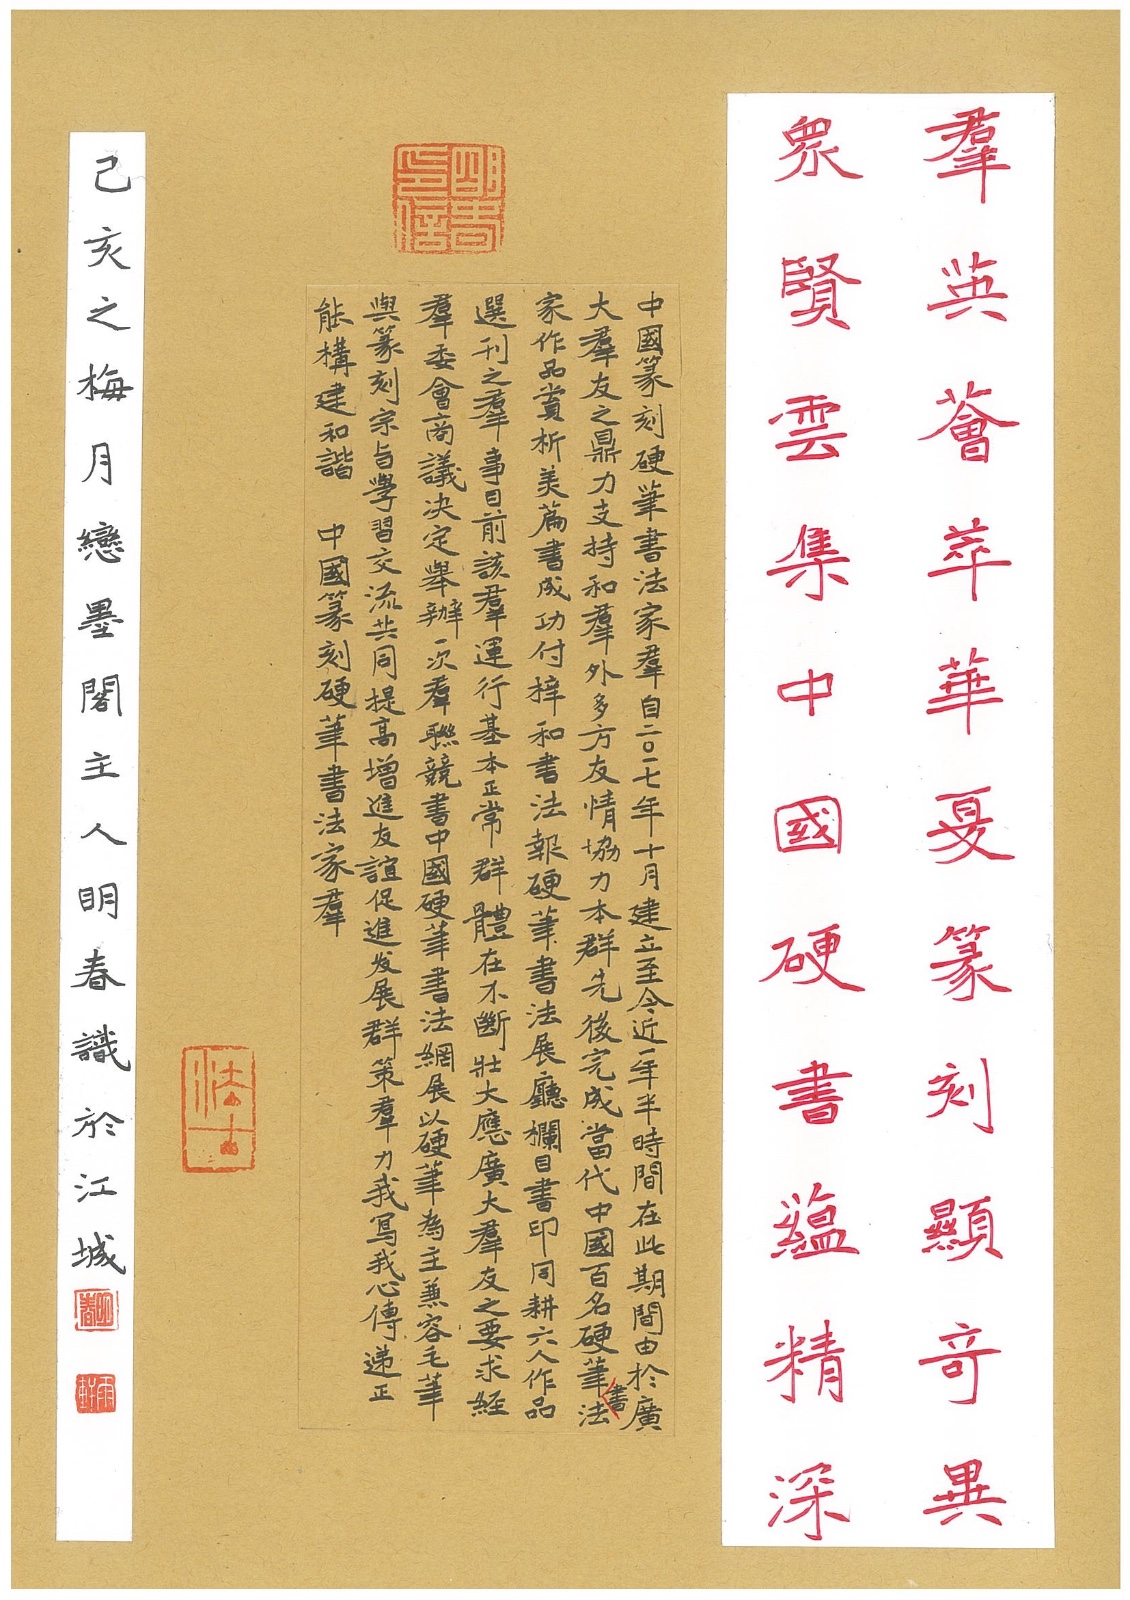 羣英薈萃華夏篆刻顯奇異
眾賢雲集中國硬書蘊精深
中國篆刻硬筆書法家羣自二〇一七年十月建立至今近一年半時間在此期間由於廣
大羣友之鼎力支持和羣外多方友情協力本群先後完成當代中國百名硬筆書法
家作品賞析美篇書成功付梓和書法報硬筆書法展廳欄目書印同耕六人作品
選刊之羣事目前該羣運行基本正常群體在不斷壯大應廣大羣友之要求經
羣委會商議決定舉辦一次羣聯競書中國硬筆書法網展以硬筆為主兼容毛筆
與篆刻宗旨學習交流共同提高增進友誼促進发展群策羣力我写我心傳递正
能構建和諧 中國篆刻硬筆書法家羣
己亥之梅月戀墨閣主人明春識於江城
明春印信
明春